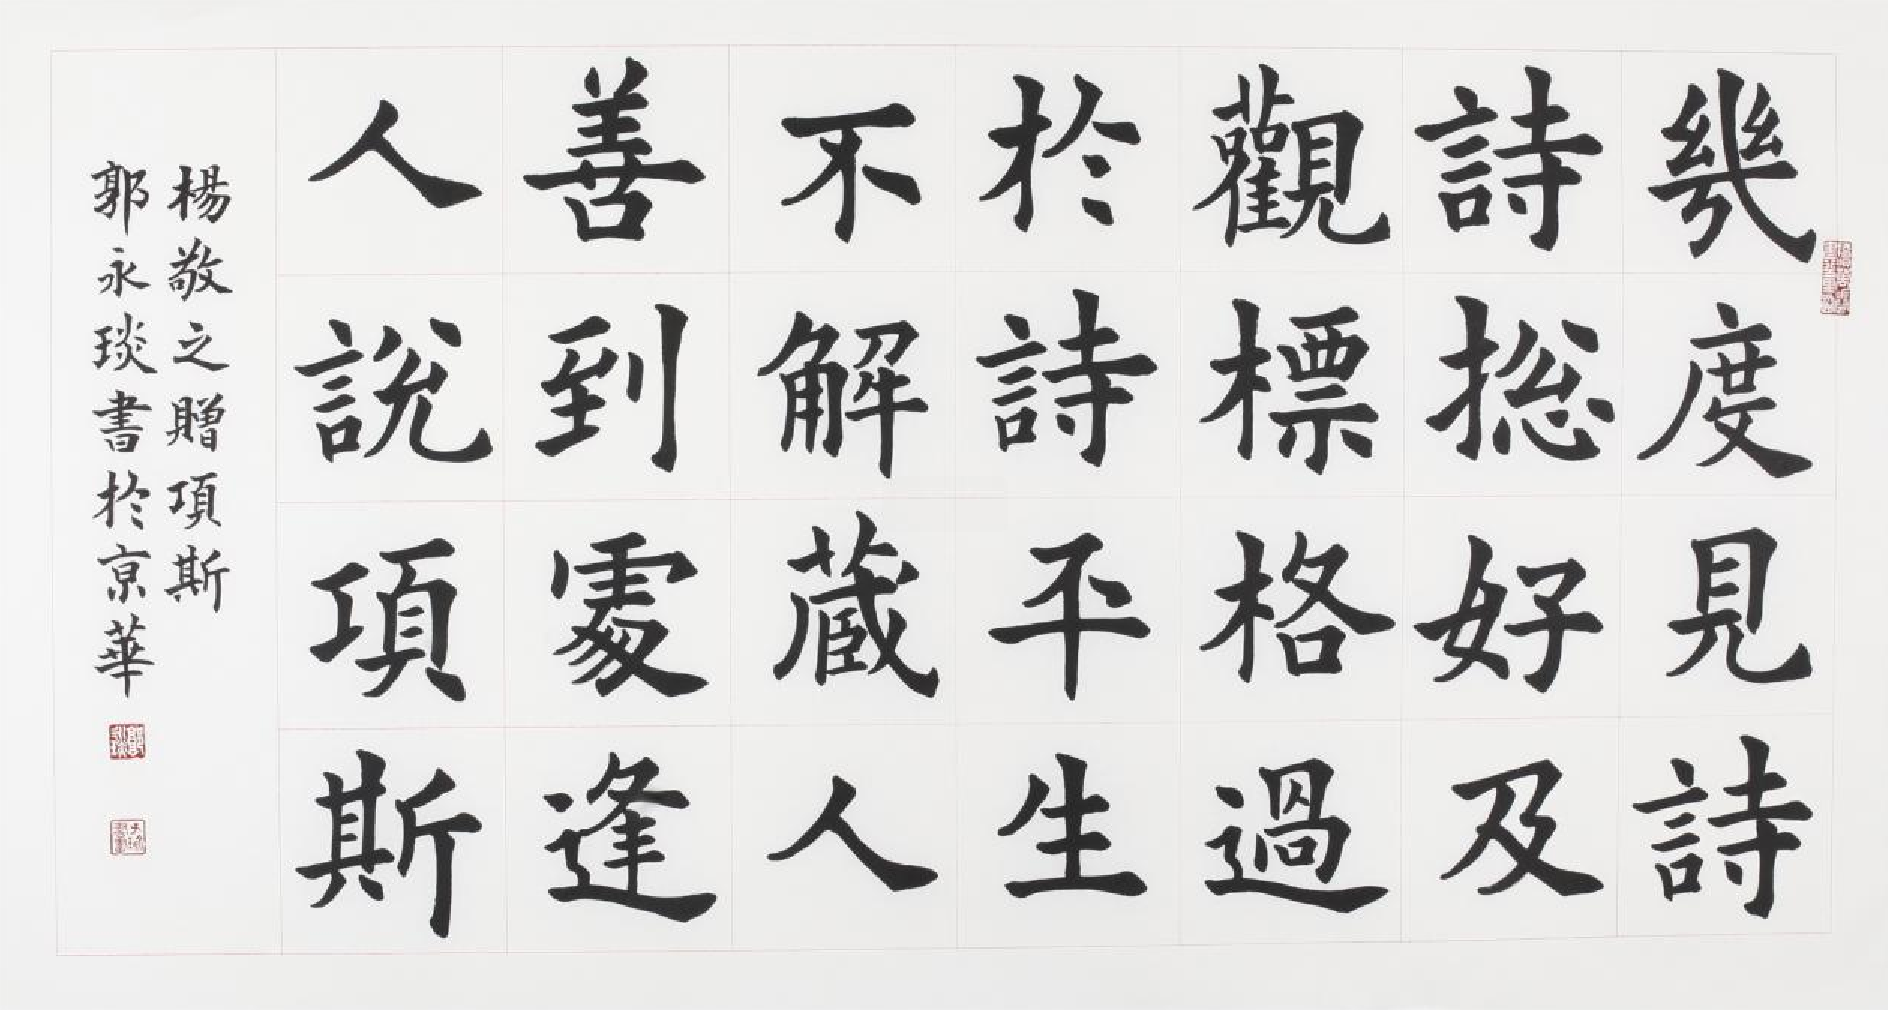 幾度見詩
詩揔好及
觀標格過
於詩平生
不解藏人
善到處逢
人說項斯
楊敬之贈項斯
郭永琰書於京華